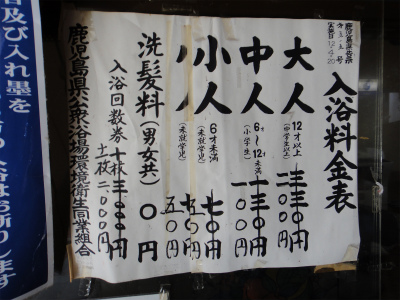 実施日 12.4.20
入浴料金表
大人 12才以上 (中学生以上)
中人 6才〜12才未満 (小学生)
小人 6才未満 (未就学児) 七〇円
人 (未就学児) 五〇円
洗髪料(男女共)〇円
入浴回数券 十枚 三〇〇〇円
鹿児島県公衆浴場環境衛生同業組合
及び入れ墨を
浴はお断りします